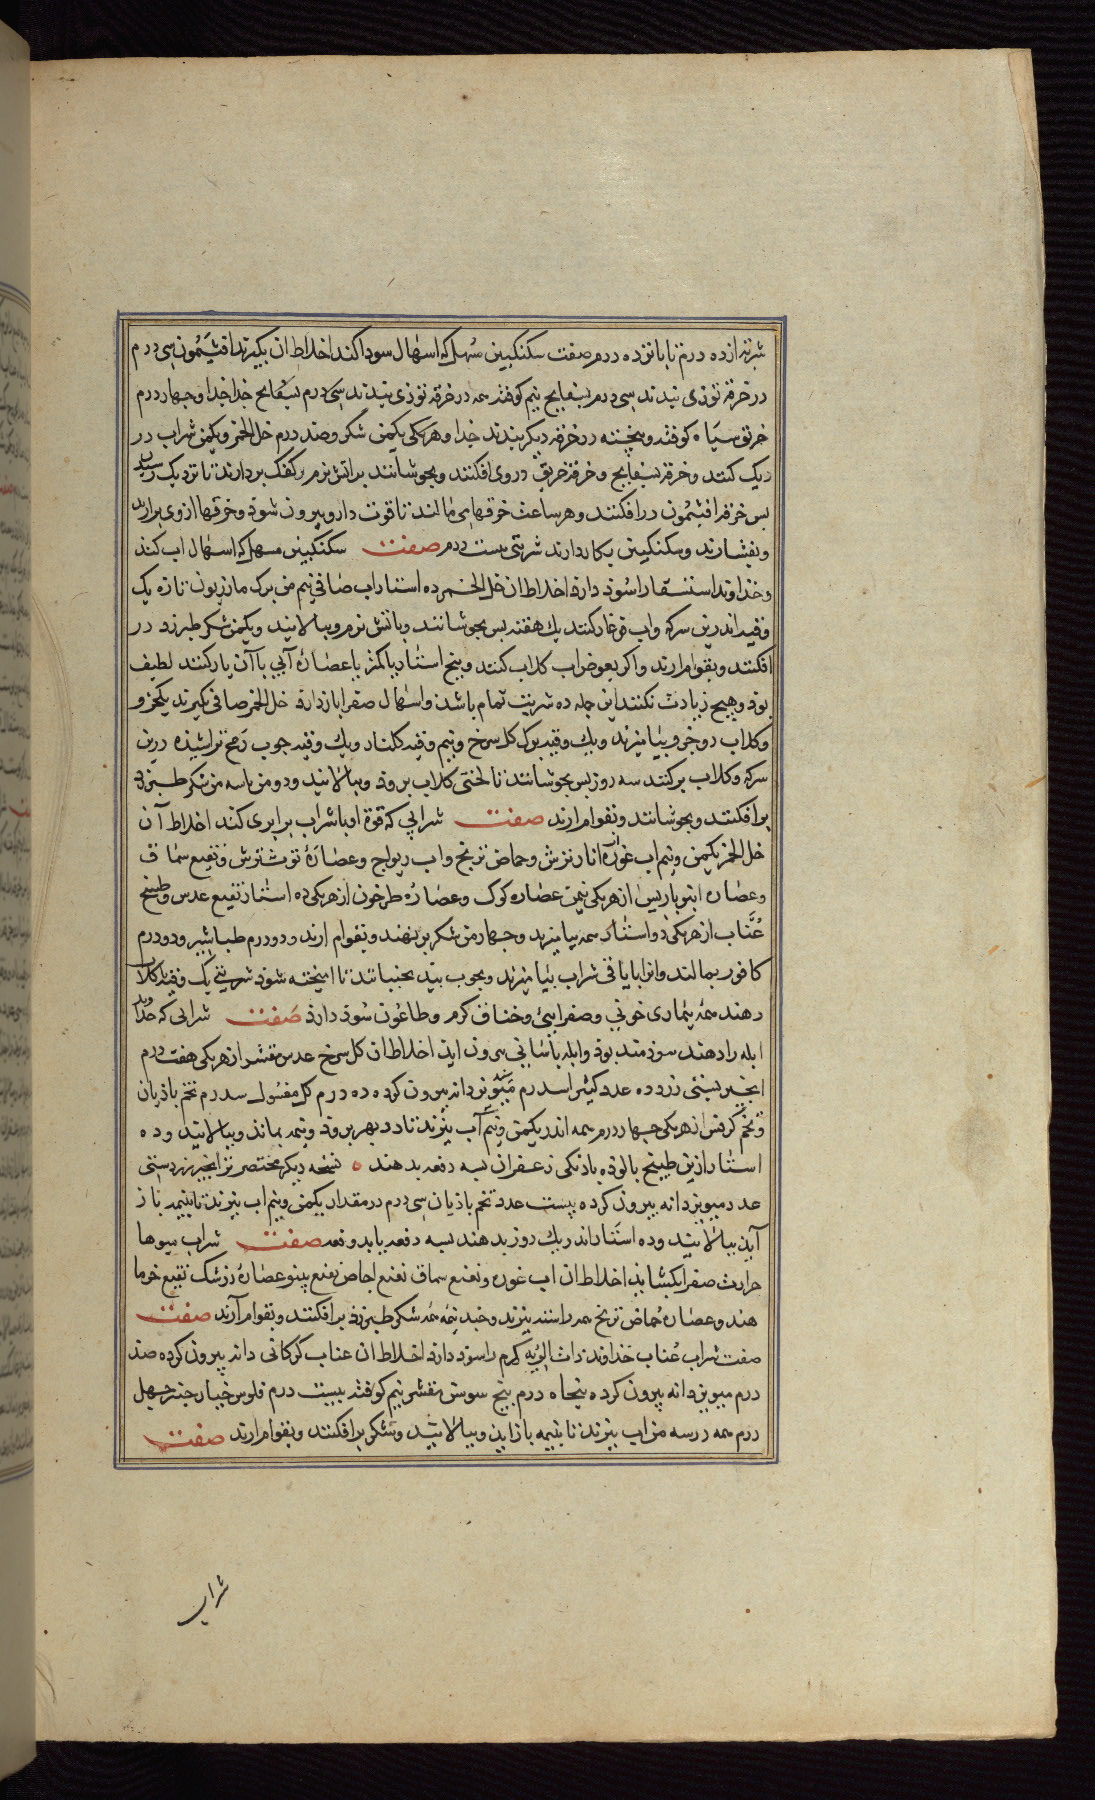 شربتی از ده درم تا پانزده درم صفت سکنکبین مسهل که اسهال سودا کند اخلاط ان بکیرند افتیمون سی درم
در خرقه توزی بندند سی درم بسفایج نیم کوفته همه در خرقه توزی بندند سی درم بسفایج جذا جذا وجهار درم
خربق سیاه کوفته وپخته در خرقه دیکر بندند جذا وهریکی یکمن شکر وصد درم خل الخمر ویکمن شراب در
دیک کنند وخرقه بسفایج وخرقه خربق در وی افکنند وبجوشانند بر اتش نرم وکفک بردارند تا نزدیک رسید
بس خرقه افتیمون در افکنند وهر ساعت خرقها بمالند تا قوت دارو بیرون شود وخرقها از وی برارند
وبفشارند وسکنکبین بکار دارند شربتی بیست درم صفت سکنکبین مسهل که اسهال اب کند
وخداوند استسقا را سود دارد اخلاط ان خل الخمر ده استار اب صافی نیم من برک مازریون تازه یک
وقیه اندرین سرکه واب فرغار کنند یک هفته بس بجوشانند وباتش نرم وبپالایند ویکمن شکر طبرزد در
افکنند وبقوام ارند واکر بعوض اب کلاب کنند وبنج استار یا کمتر یا عصاره آبی باآن یار کنند لطیف
بود وهیچ زیادت نکنند این جمله ده شربت تمام باشد واسهال صفرا باز دارد خل الخمر صافی بکیرند یکجزو
وکلاب دو جزو بیامیزند ویک وقیه برک کل سرخ ونیم وقیه کلنار ویک وقیه جوب رمح تراشیده درین
سرکه وکلاب برکنند سه روز بس بجوشانند تا لختی کلاب برود وبپالایند ودو من یا سه من شکر طبرزد
برافکنند وبجوشانند وبقوام ارند صفت شرابی که قوة او با شراب برابری کند اخلاط آن
خل الخمر یکمن ونیم اب غوره انار ترش وحماض ترنج واب ریواج وعصاره توث ترش ونقیع سماق
وعصاره انبرباریس از هریکی نیمن عصاره کوک وعصاره طرخون از هریکی ده استار نقیع عدس وطبیخ
عناب از هریکی دو استار همه بیامیزند وجهار من شکر برنهند وبقوام ارند ودو درم طباشیر ودو درم
کافور بمالند وانرا باباقی شراب بیامیزند وبجوب بید بجنبانند تا امیخته شود شربتی یک وقیه باکلاب
دهند همه بیماری خونی وصفرایی وخناق کرم وطاعون سود دارد صفت شرابی که خداوند
ابله را دهند سودمند بود وابله باسانی بیرون اید اخلاط ان کل سرخ عدس مقشر از هریکی هفت درم
انجیر بستی زرد ده عدد کثیرا سدرم مبویز دانه بیرون کرده ده درم لک مغسول سدرم تخم باذیان
وتخم کرفس از هریکی جهار درم همه اندر یکمن ونیم آب ببزند تا دو بهر برود ونیمه بماند وبپالایند وده
استار ازین طبیخ بالوده با دنکی زعفران بسه دفعه بدهند ه نسخه دیکر مختصرتر انجیر زرد بستی
عدد مبویز دانه بیرون کرده بیست عدد تخم باذیان سی درم در مقدار یکمن ونیم اب ببزند تا بنیمه باز
آید بپالایند وده استار اندر یک روز بدهند بسه دفعه یا بدو دفعه صفت شراب میوها
حرارت صفرا بکشاند اخلاط ان اب غوره ونقیع سماق نقیع اجاص نقیع بینو عصاره زرشک نقیع خرما
هند وعصاره حماض ترنج همه راستد ببزند وجند نیمه همه شکر طبرزد برافکنند وبقوام آرند صفت
صفت شراب عناب خداوند ذات الریه کرم را سود دارد اخلاط ان عناب کرکانی دانه بیرون کرده صد
درم مبویز دانه بیرون کرده پنجاه درم بیخ سوس مقشر نیم کوفته بیست درم فلوس خیار جنبر جهل
درم همه در سه من اب ببزند تا بنیمه باز اید وبپالایند وشکر برافکنند وبقوام ارند صفت
شراب